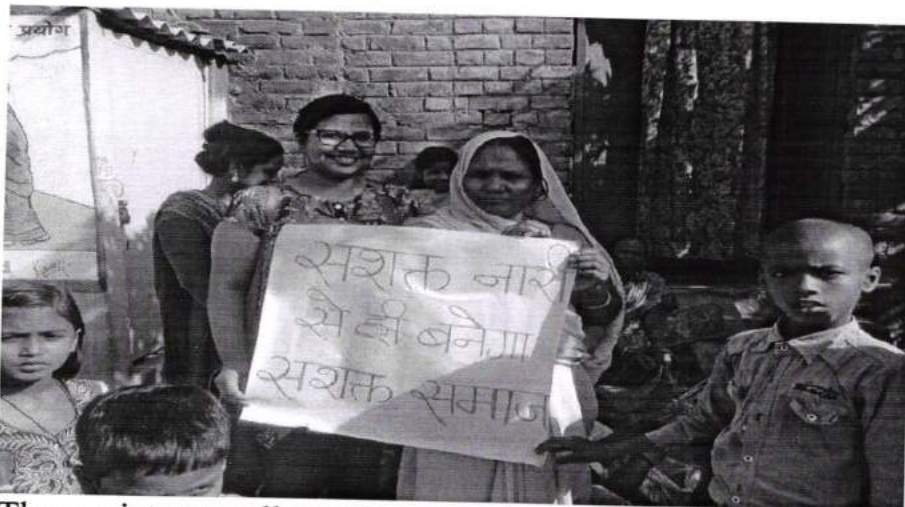 प्रयोग
सशक्त नारी
से ही बनेगा
सशक्त समाज